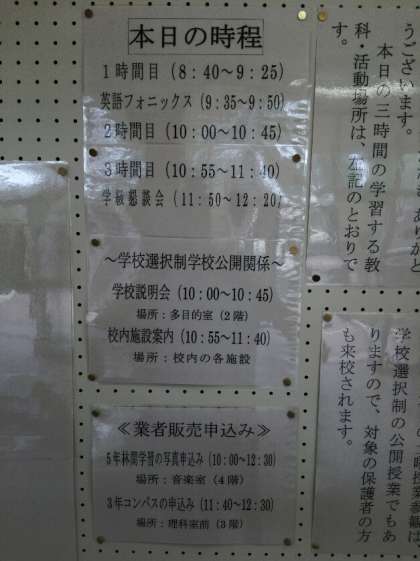 本日の時程
1時間目（8：40～9：25）
英語フォニックス（9：35～9：50）
2時間目（10：00～10：45）
3時間目（10：55～11：40）
学級懇談会（11：50～12：20）
～学校選択制学校公開関係～
学校説明会（10：00～10：45）
場所：多目的室（2階）
校内施設案内（10：55～11：40）
場所：校内の各施設
≪業者販売申込み≫
5年林間学習の写真申込み（10：00～12：30）
場所：音楽室（4階）
3年コンパスの申込み（11：40～12：30）
場所：理科室前（3階）
うございます。
本日の三時間の学習する教
科・活動場所は、左記のとおりで
す。
学校選択制の公開授業でもあ
りますので、対象の保護者の方
も来校されます。